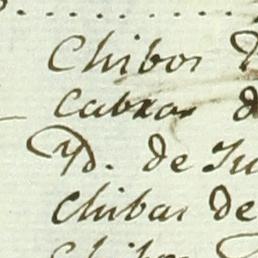 Chibos
Cabras d
Yd. de Ju
Chibas de